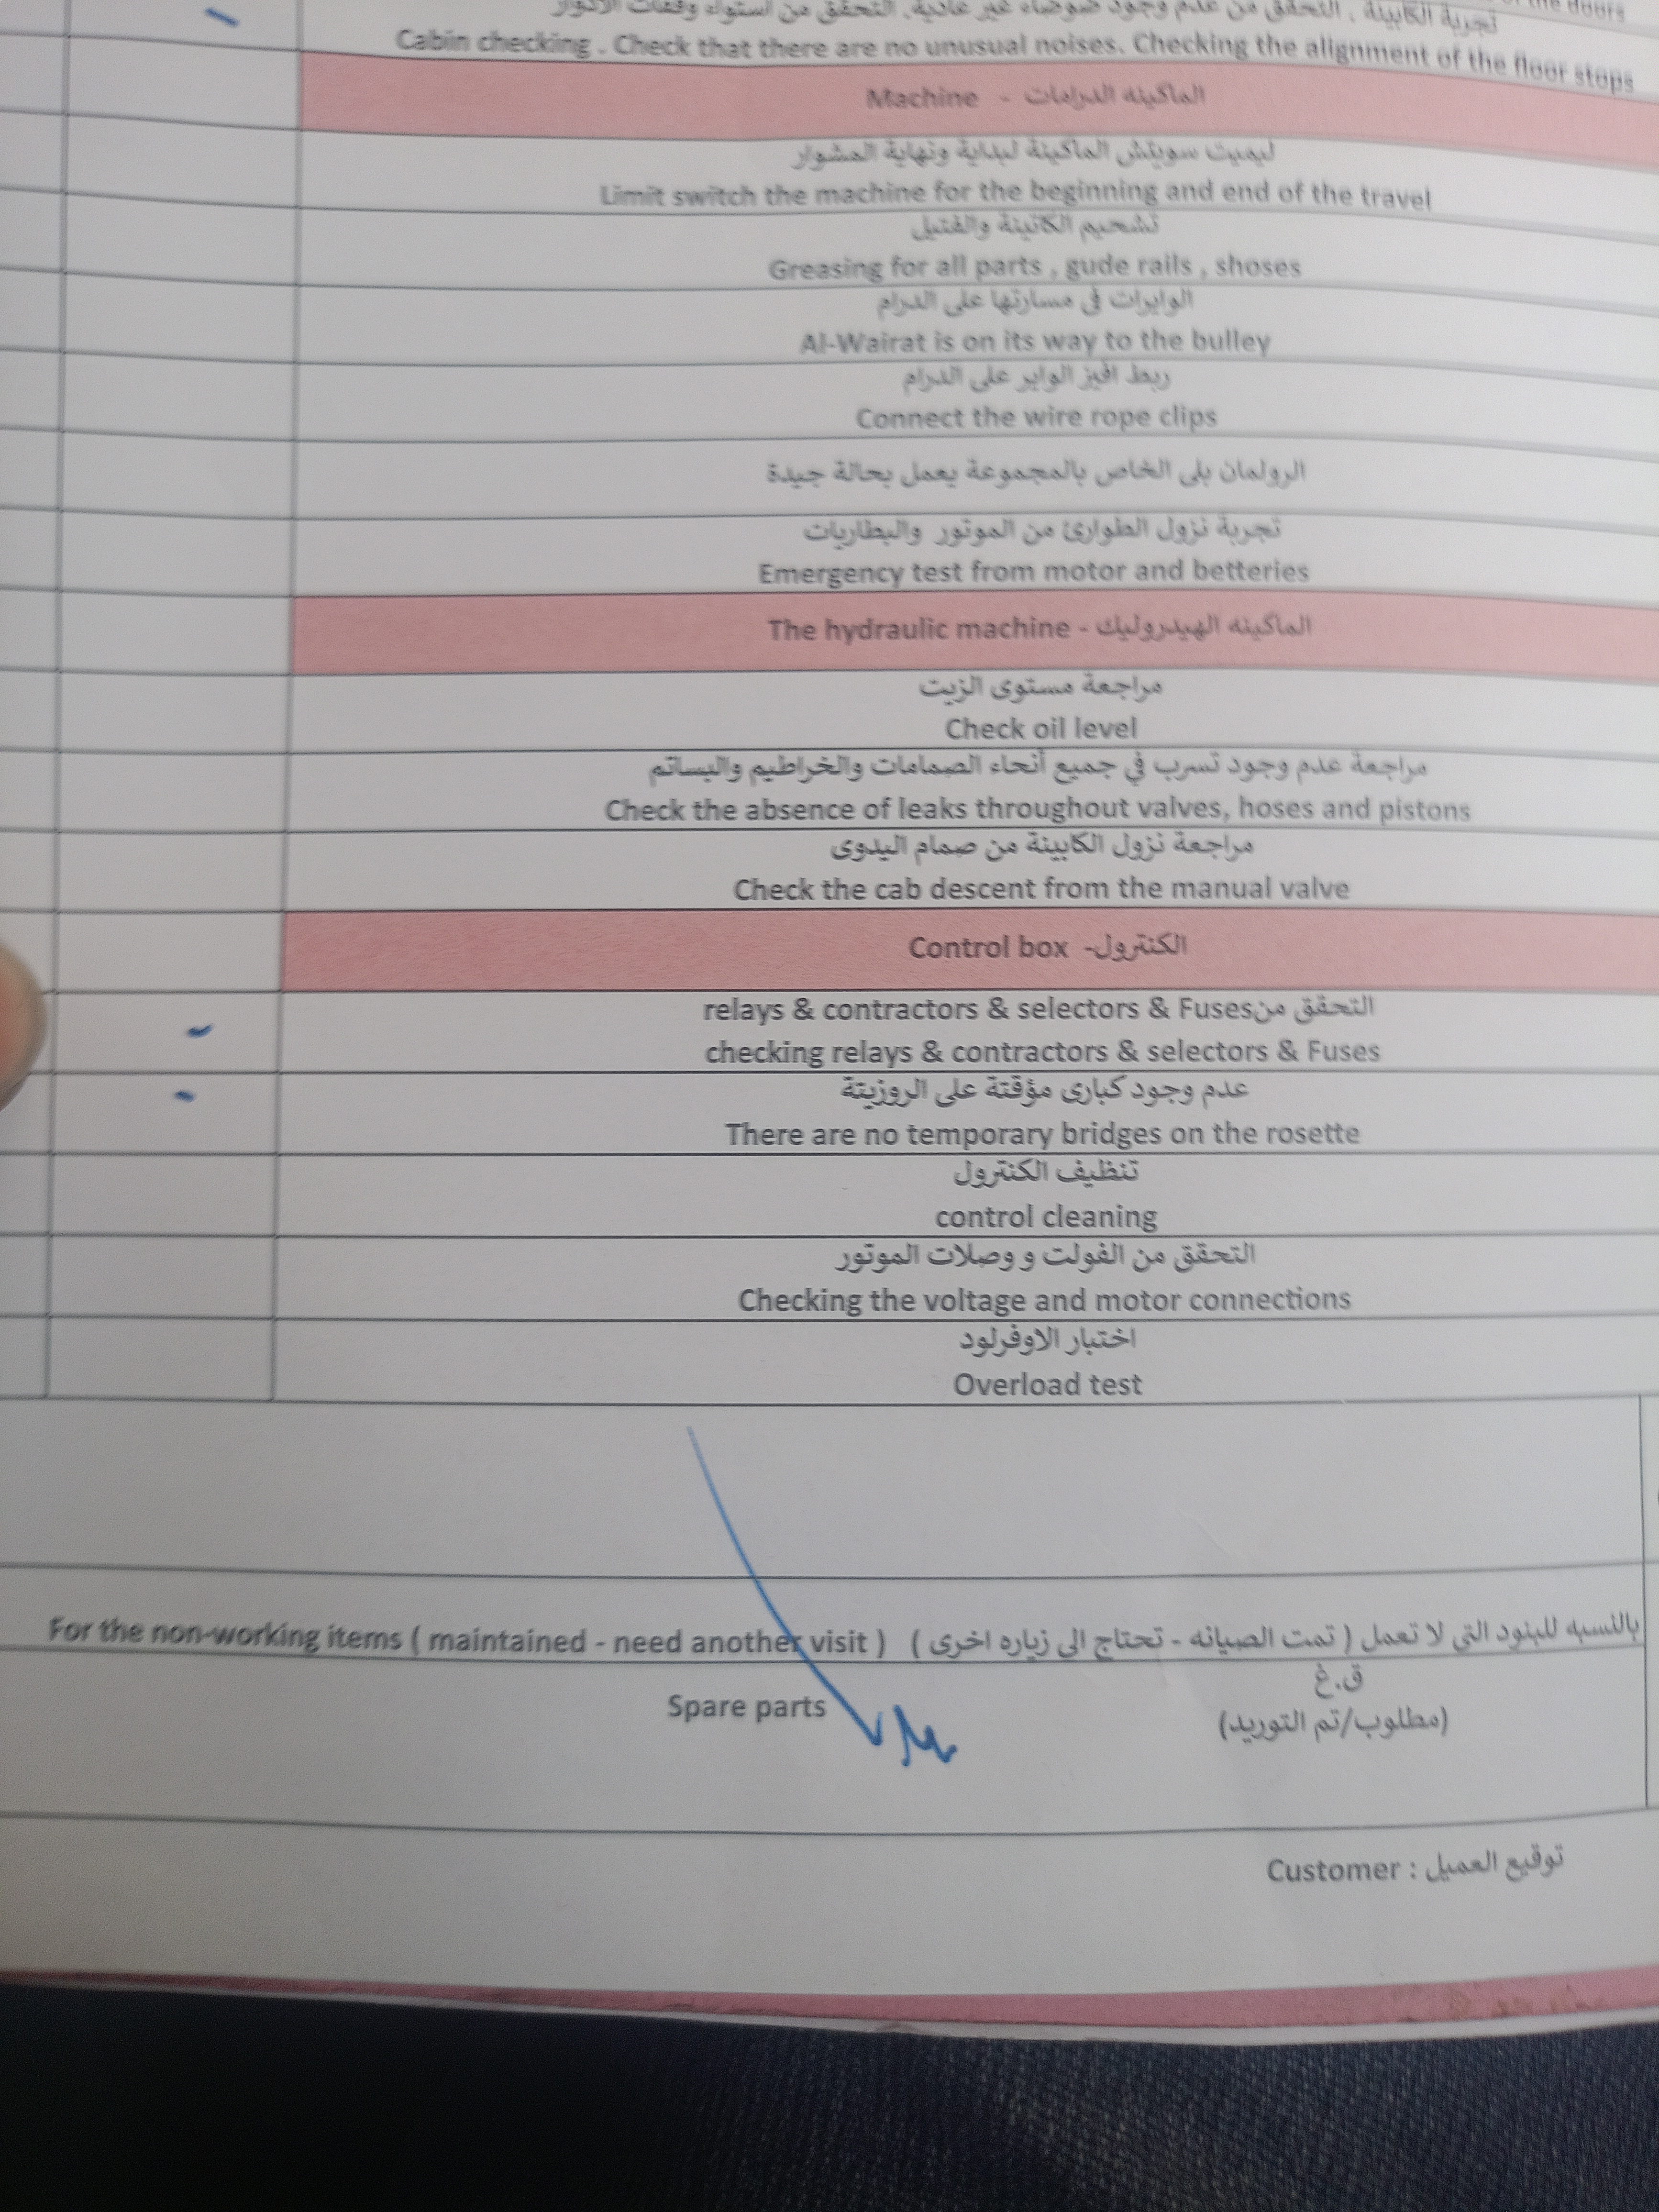 the doors
تجربة الكابينة . التحقق من عدم وجود ضوضاء غير عادية. التحقق من استواء وقفات الادوار
Cabin checking . Check that there are no unusual noises. Checking the alignment of the floor stops
Machine - الماكينه الدرامات
ليميت سويتش الماكينة لبداية ونهاية المشوار
Limit switch the machine for the beginning and end of the travel
تشحيم الكاتينة والفتيل
Greasing for all parts , gude rails , shoses
الوايرات في مسارتها على الدرام
Al-Wairat is on its way to the bulley
ربط افيز الواير على الدرام
Connect the wire rope clips
الرولمان بلى الخاص بالمجموعة يعمل بحالة جيدة
تجربة نزول الطوارئ من الموتور والبطاريات
Emergency test from motor and betteries
The hydraulic machine - الماكينه الهيدروليك
مراجعة مستوى الزيت
Check oil level
مراجعة عدم وجود تسرب في جميع أنحاء الصمامات والخراطيم والبساتم
Check the absence of leaks throughout valves, hoses and pistons
مراجعة نزول الكابينة من صمام اليدوى
Check the cab descent from the manual valve
Control box -الكنترول
relays & contractors & selectors & Fusesالتحقق من
checking relays & contractors & selectors & Fuses
عدم وجود كبارى مؤقتة على الروزيتة
There are no temporary bridges on the rosette
تنظيف الكنترول
control cleaning
التحقق من الفولت و وصلات الموتور
Checking the voltage and motor connections
اختبار الاوفرلود
Overload test
For the non-working items ( maintained - need another visit ) بالنسبه للبنود التى لا تعمل ( تمت الصيانه - تحتاج الى زياره اخرى )
ق.غ
Spare parts
(مطلوب/تم التوريد)
Customer : توقيع العميل